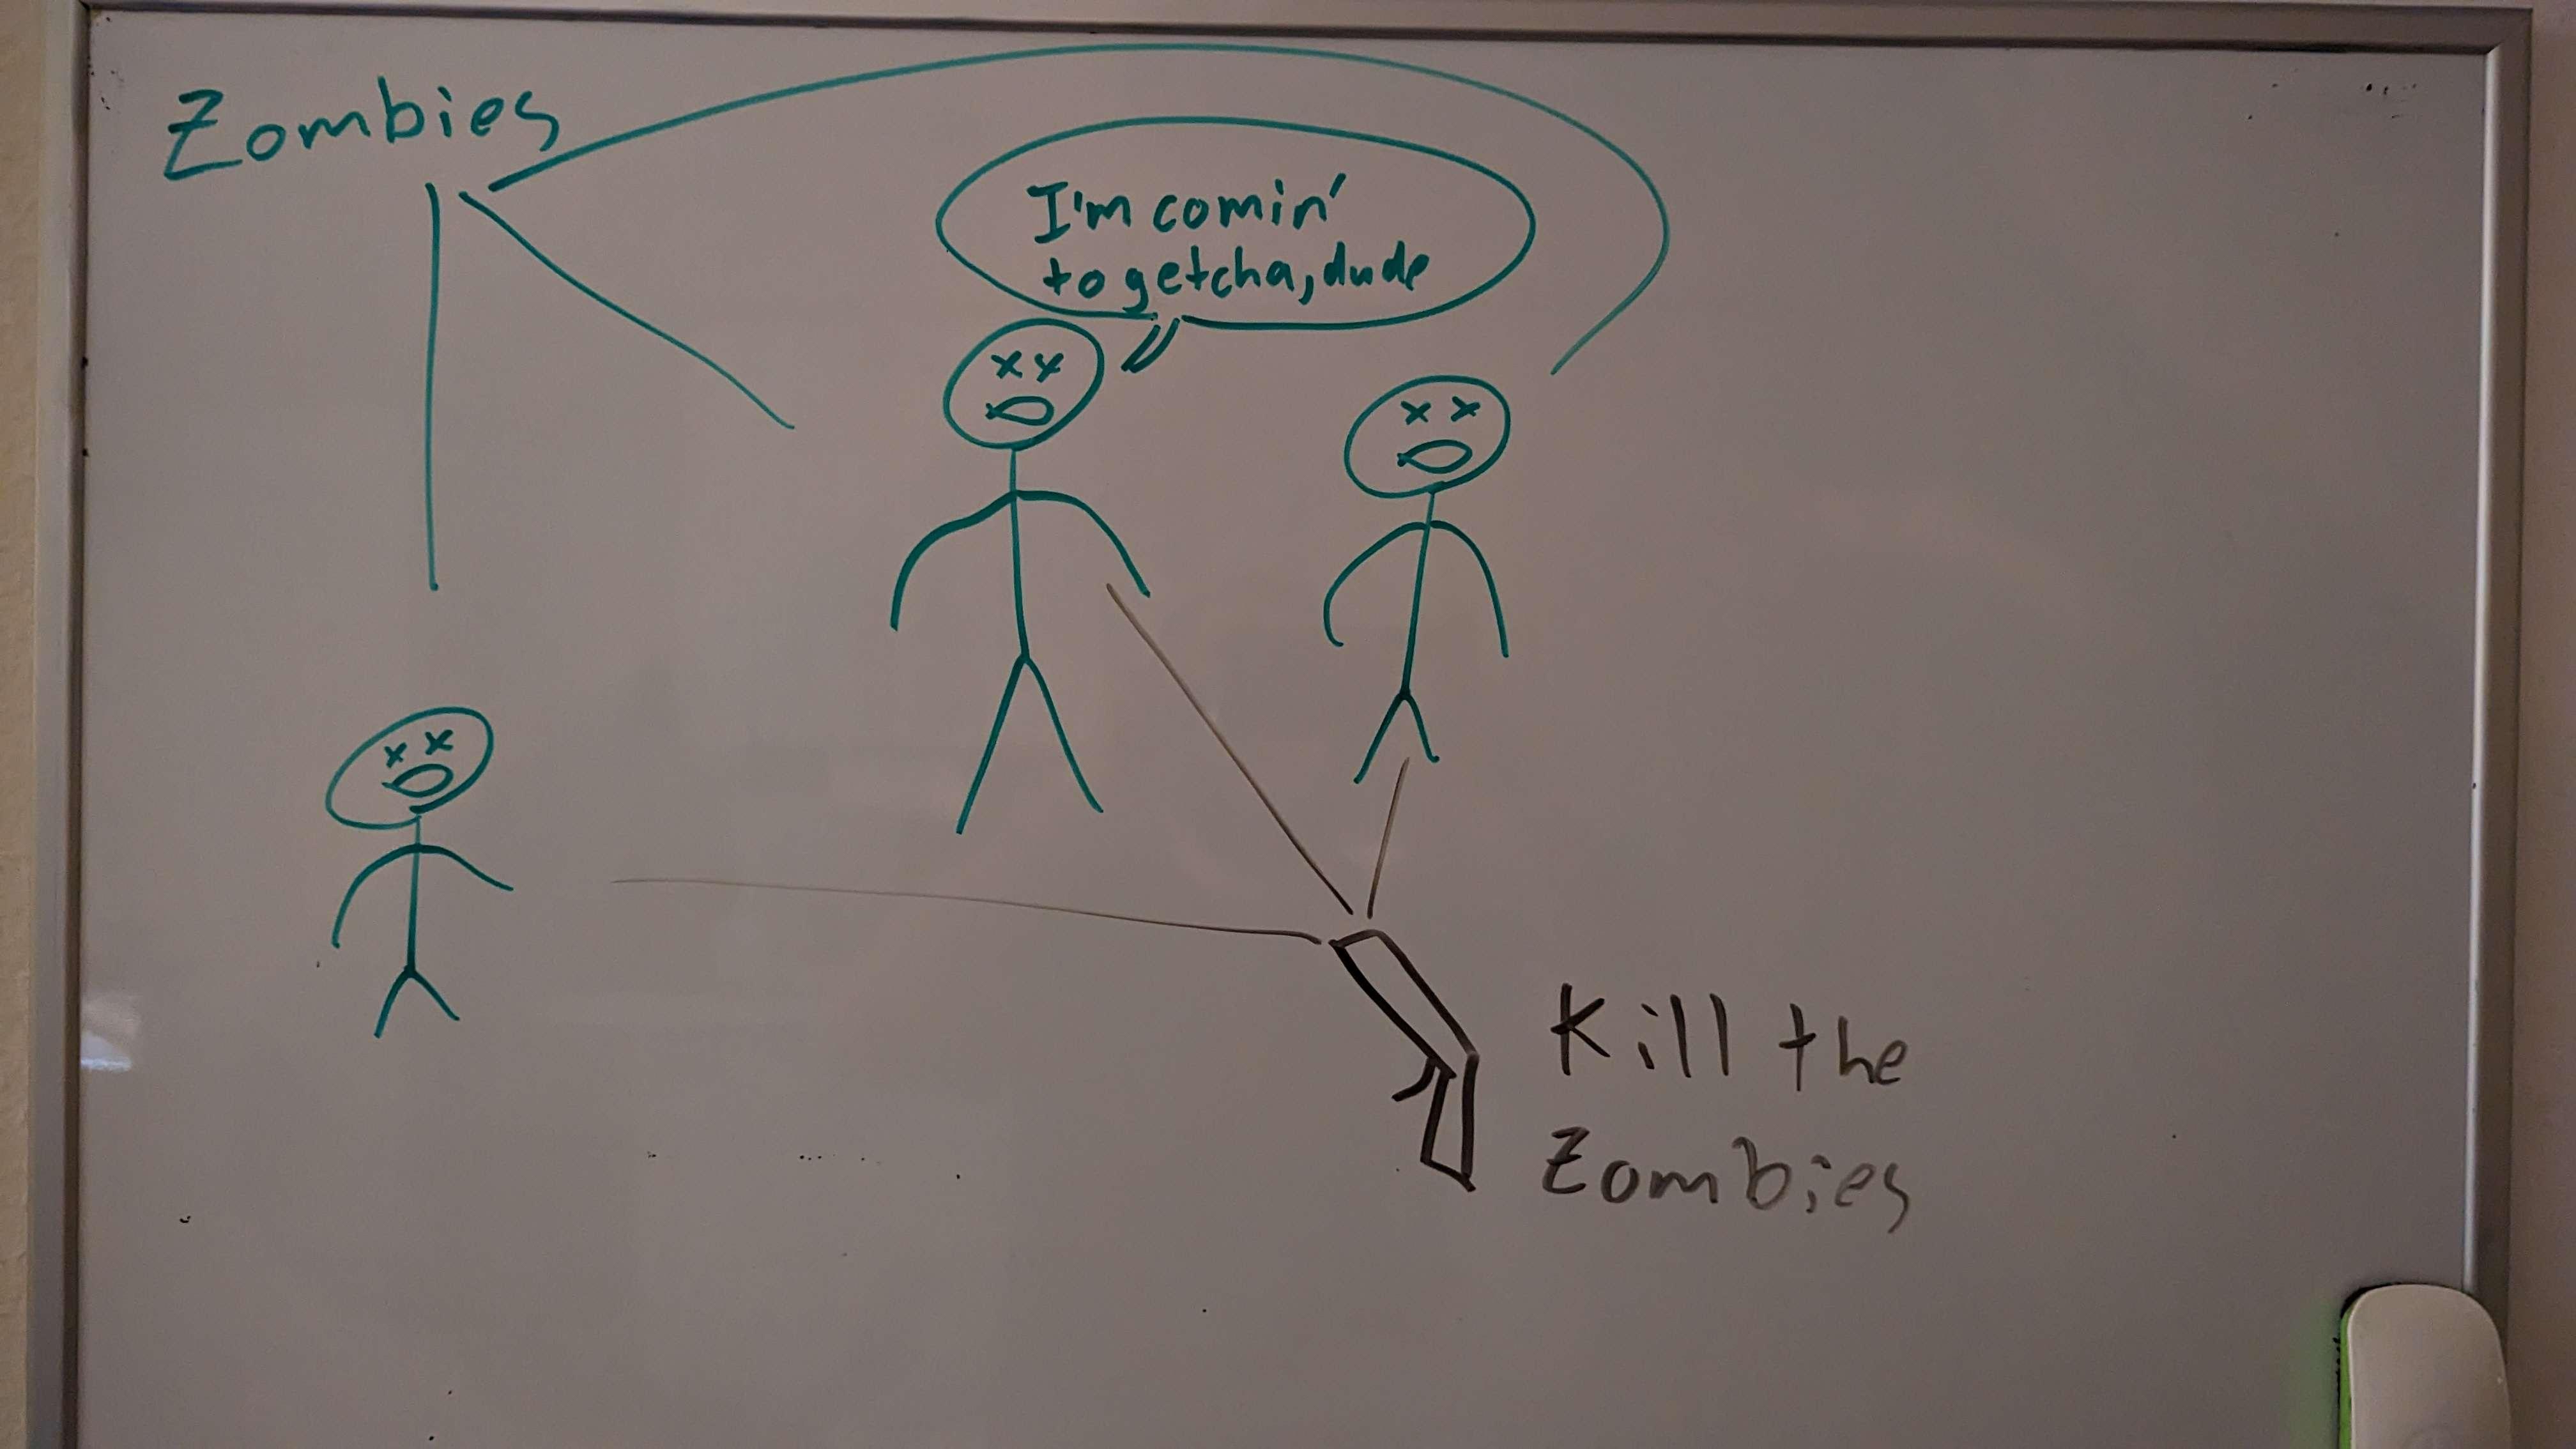 Zombies
I'm comin'
to getcha, dude
Kill the
Zombies